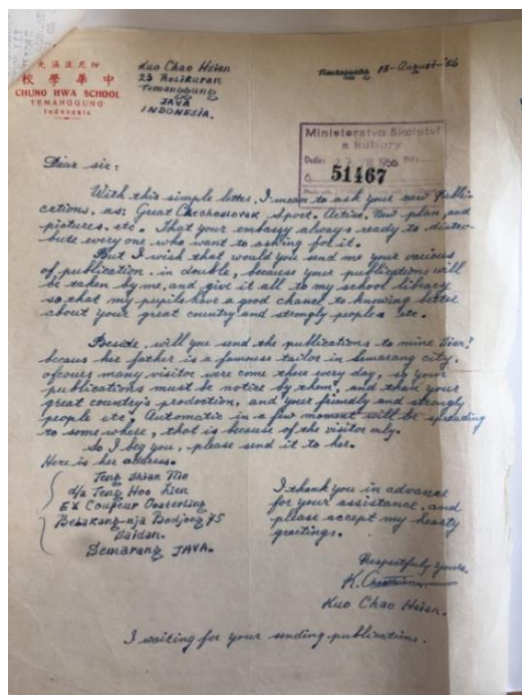 中華學校
CHUNG HWA SCHOOL
TEMANGGUNG
Indonesia
Kuo Chao Hsien
23 Rolikuran
Temanggung
JAVA
INDONESIA.
Temanggung 15-August-'56
Ministerstvo Školství
a kultury
Došlo:
51467
Dear sir,
With this simple letter, I mean to ask your new Publi-
cations, as: Great Chechoslovak Spoet. Action, New plan, and
pictures. etc. That your embassy always ready to distri-
bute every one who want to asking for it.
But I wish that would you send me your various
of publication. in double, because your publications will
be taken by me, and give it all to my school library
so that my pupils have a good chance to knowing better
about your great country and strongly peoples etc.
Beside, will you send the publications to mine
becaus her father is a famouse tailor in Semarang city.
ofcours many visitor were come there every day, so your
publications must be notice by them, and than your
great country's production, and your friendly and strongly
people etc. Automatic in a few moment will be spreading
to some where, that is becouse of the visitor only.
So I beg you, please send it to her.
Here is her address.
Teng Shian Nio
d/a Teng Hoo Lien
Ex Coupeur Oosterling
Belakang-nja Bodjong 75
Saidan.
Semarang JAVA.
I thank you in advance
for your assistance, and
please accept my hearty
greetings.
Respectfuly yours.
K.
Kuo Chao Hsien.
I waiting for your sending publications.